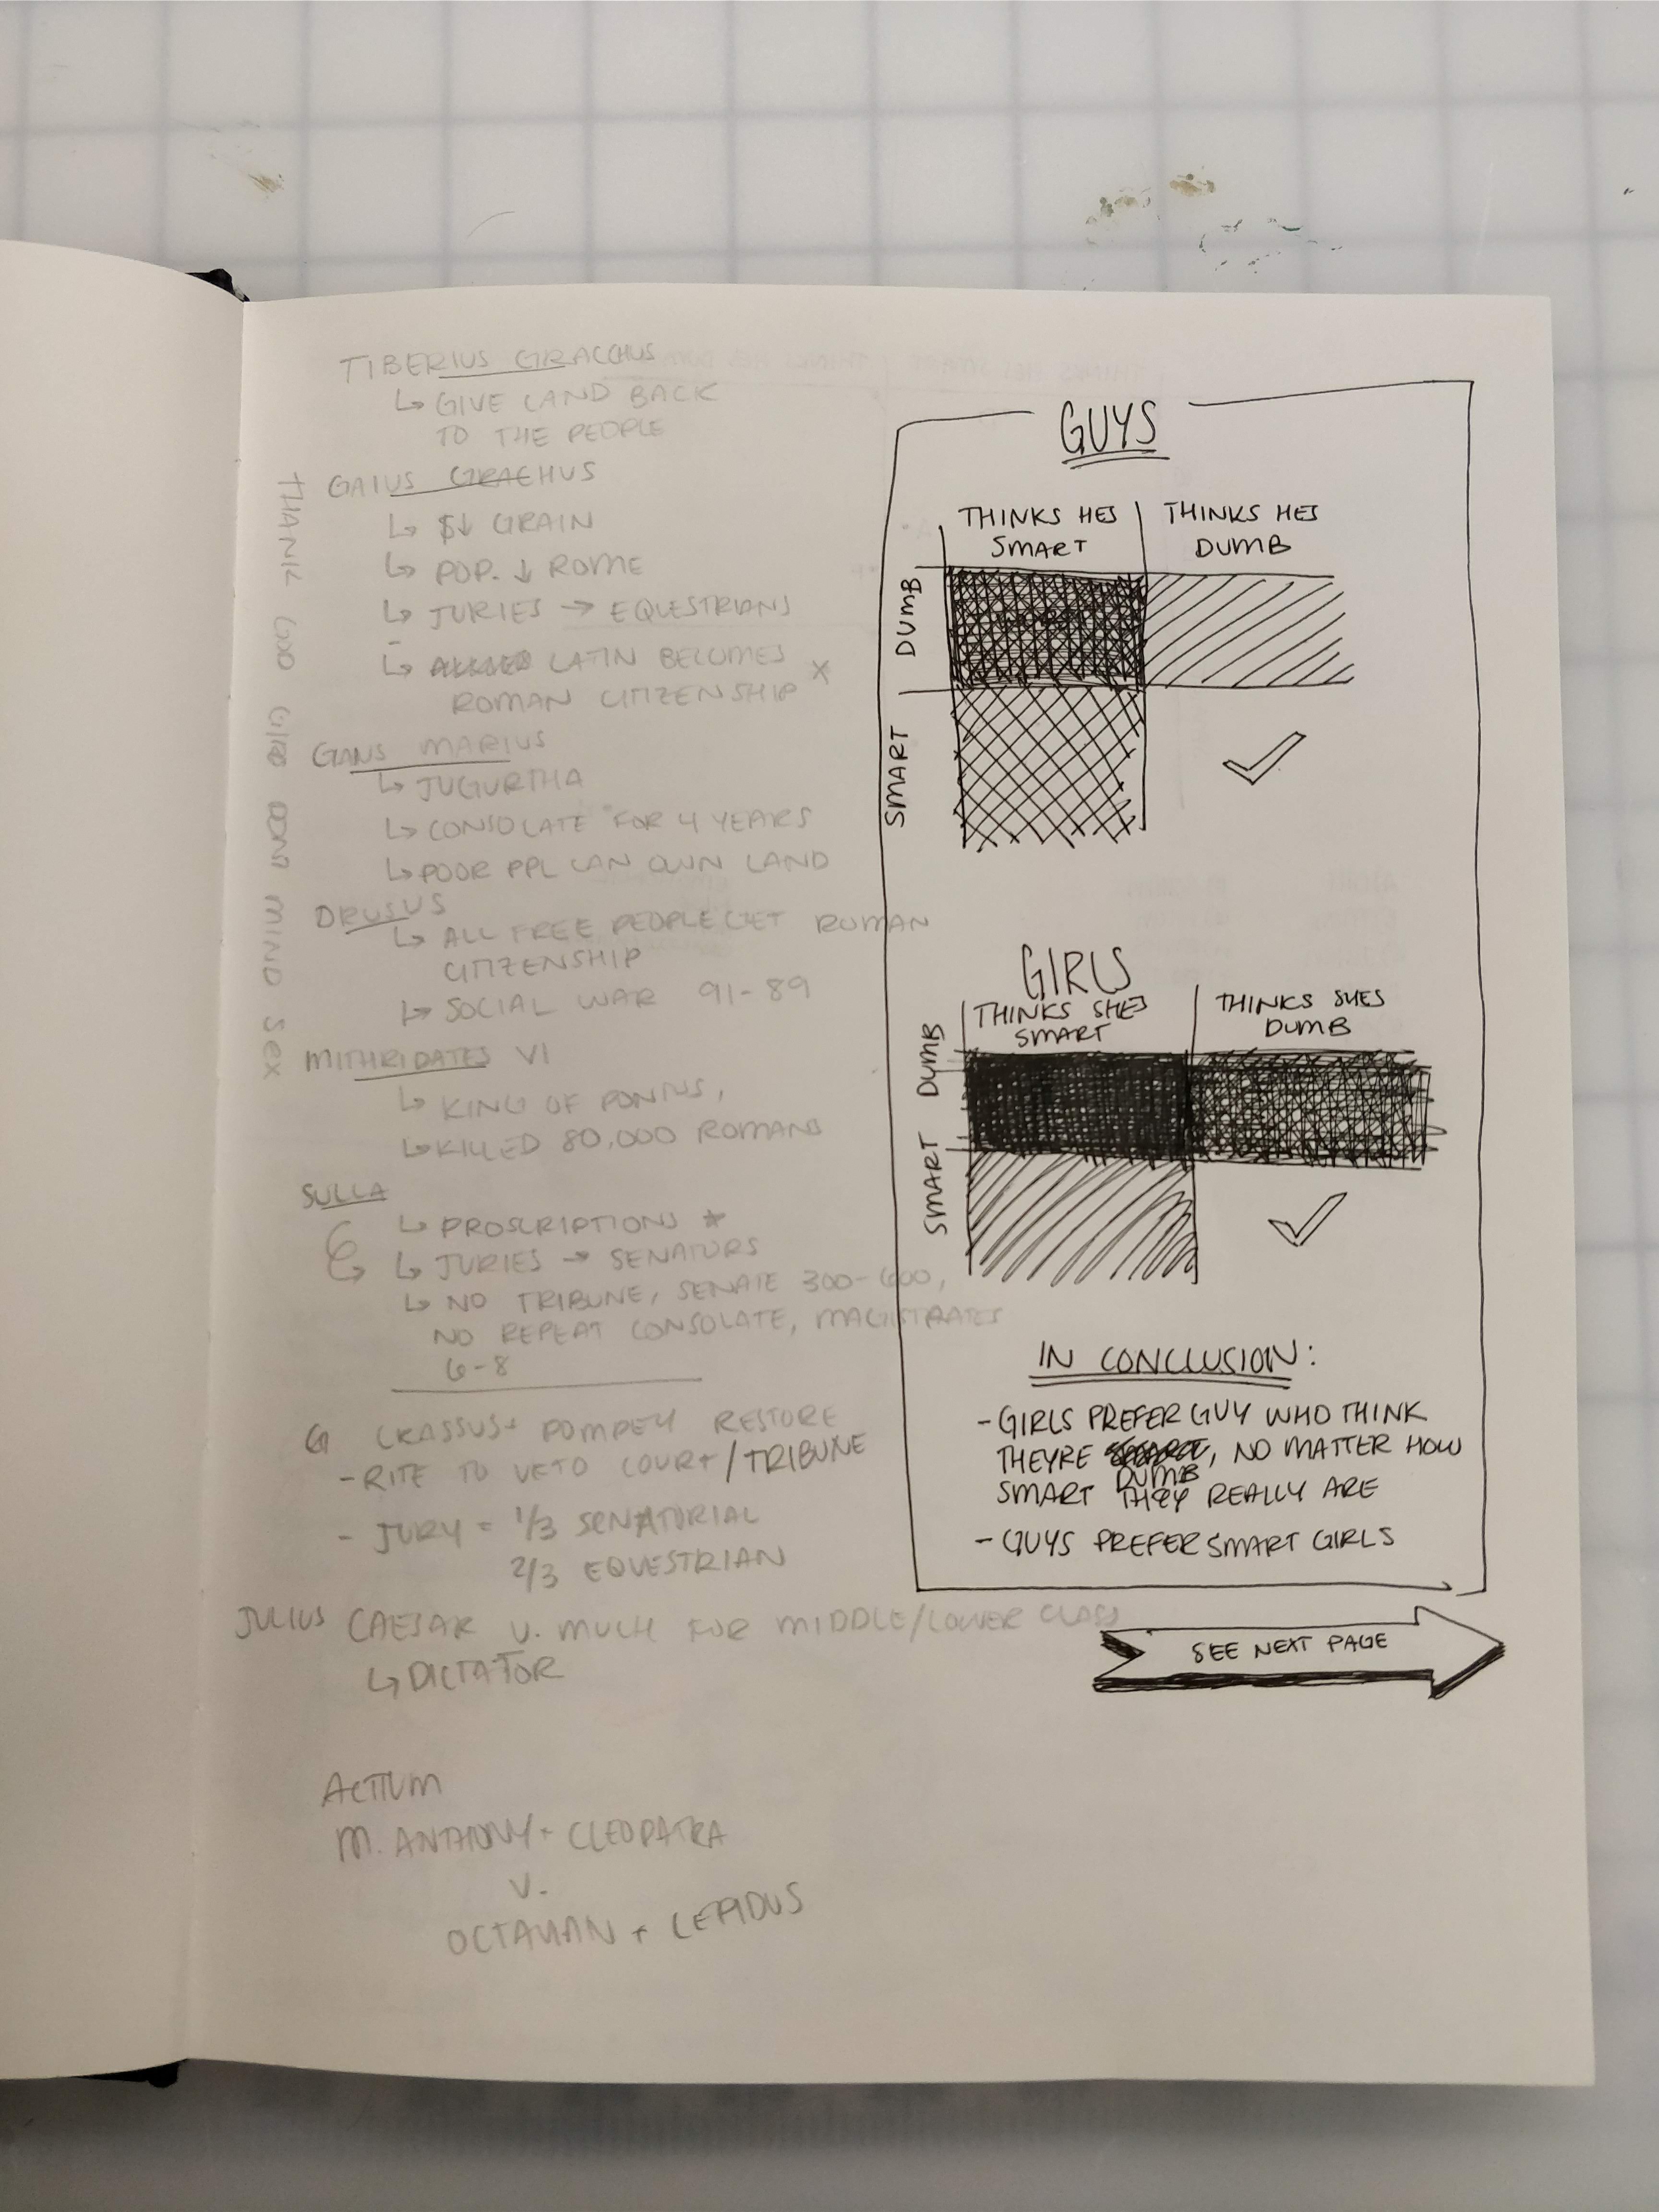 TIBERIUS GRACCHUS
↳ GIVE LAND BACK
TO THE PEOPLE
GAIUS GRACHUS
↳ $↓ GRAIN
↳ POP. ↓ ROME
↳ JURIES → EQUESTRIANS
↳ LATIN BECOMES X
ROMAN CITIZENSHIP
MARIUS
↳ JUGURTHA
↳ CONSOLATE FOR 4 YEARS
↳ POOR PPL CAN OWN LAND
DRUSUS
↳ ALL FREE PEOPLE GET ROMAN
CITIZENSHIP
↳ SOCIAL WAR 91-89
MITHRIDATES VI
↳ KING OF PONTUS,
↳ KILLED 80,000 ROMANS
SULLA
↳ PROSCRIPTIONS *
↳ JURIES → SENATORS
↳ NO TRIBUNE, SENATE 300-600,
NO REPEAT CONSOLATE, MAGISTRATES
6-8
G CRASSUS + POMPEY RESTORE
- RITE TO VETO COURT/TRIBUNE
- JURY = 1/3 SENATORIAL
2/3 EQUESTRIAN
JULIUS CAESAR V. MUCH FOR MIDDLE/LOWER CLASS
↳ DICTATOR
ACTIUM
M. ANTHONY + CLEOPATRA
V.
OCTAVIAN + LEPIDUS
THANK GOD MIND SEX
GUYS
THINKS HES SMART
THINKS HES DUMB
DUMB
SMART
GIRLS
THINKS SHES SMART
THINKS SHES DUMB
DUMB
SMART
IN CONCLUSION:
- GIRLS PREFER GUY WHO THINK
THEYRE DUMB, NO MATTER HOW
SMART THEY REALLY ARE
- GUYS PREFER SMART GIRLS
SEE NEXT PAGE